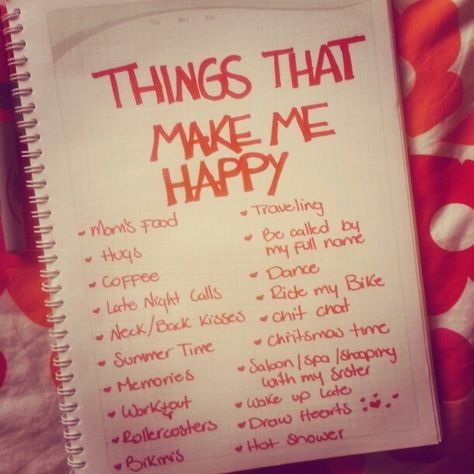 THINGS THAT
MAKE ME
HAPPY
Mom's Food
Hugs
Coffee
Late Night Calls
Neck/Back Kisses
Summer Time
Memories
Workout
Rollercosters
Bikinis
Traveling
Be called by
my full name
Dance
Ride my Bike
Chit chat
Chritsmas time
Saloon/spa/shopping
with my sister
Wake up Late
Draw Hearts
Hot shower